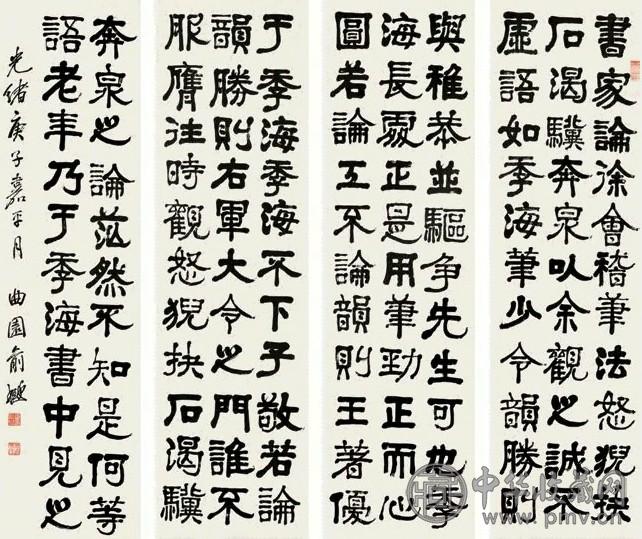 書家論徐會稽筆法怒猊抉
石渴驥奔泉以余觀之誠不
虛語如季海筆少令韻勝則
與稚恭並驅爭先生可也季
海長處正是用筆勁正而心
圓若論工不論韻則王著優
于季海季海不下子敬若論
韻勝則右軍大令之門誰不
服膺往時觀怒猊抉石渴驥
奔泉之論茫然不知是何等
語老年乃于季海書中見之
光緒庚子嘉平月 曲園俞樾
中华收藏网
www.pmv.cn